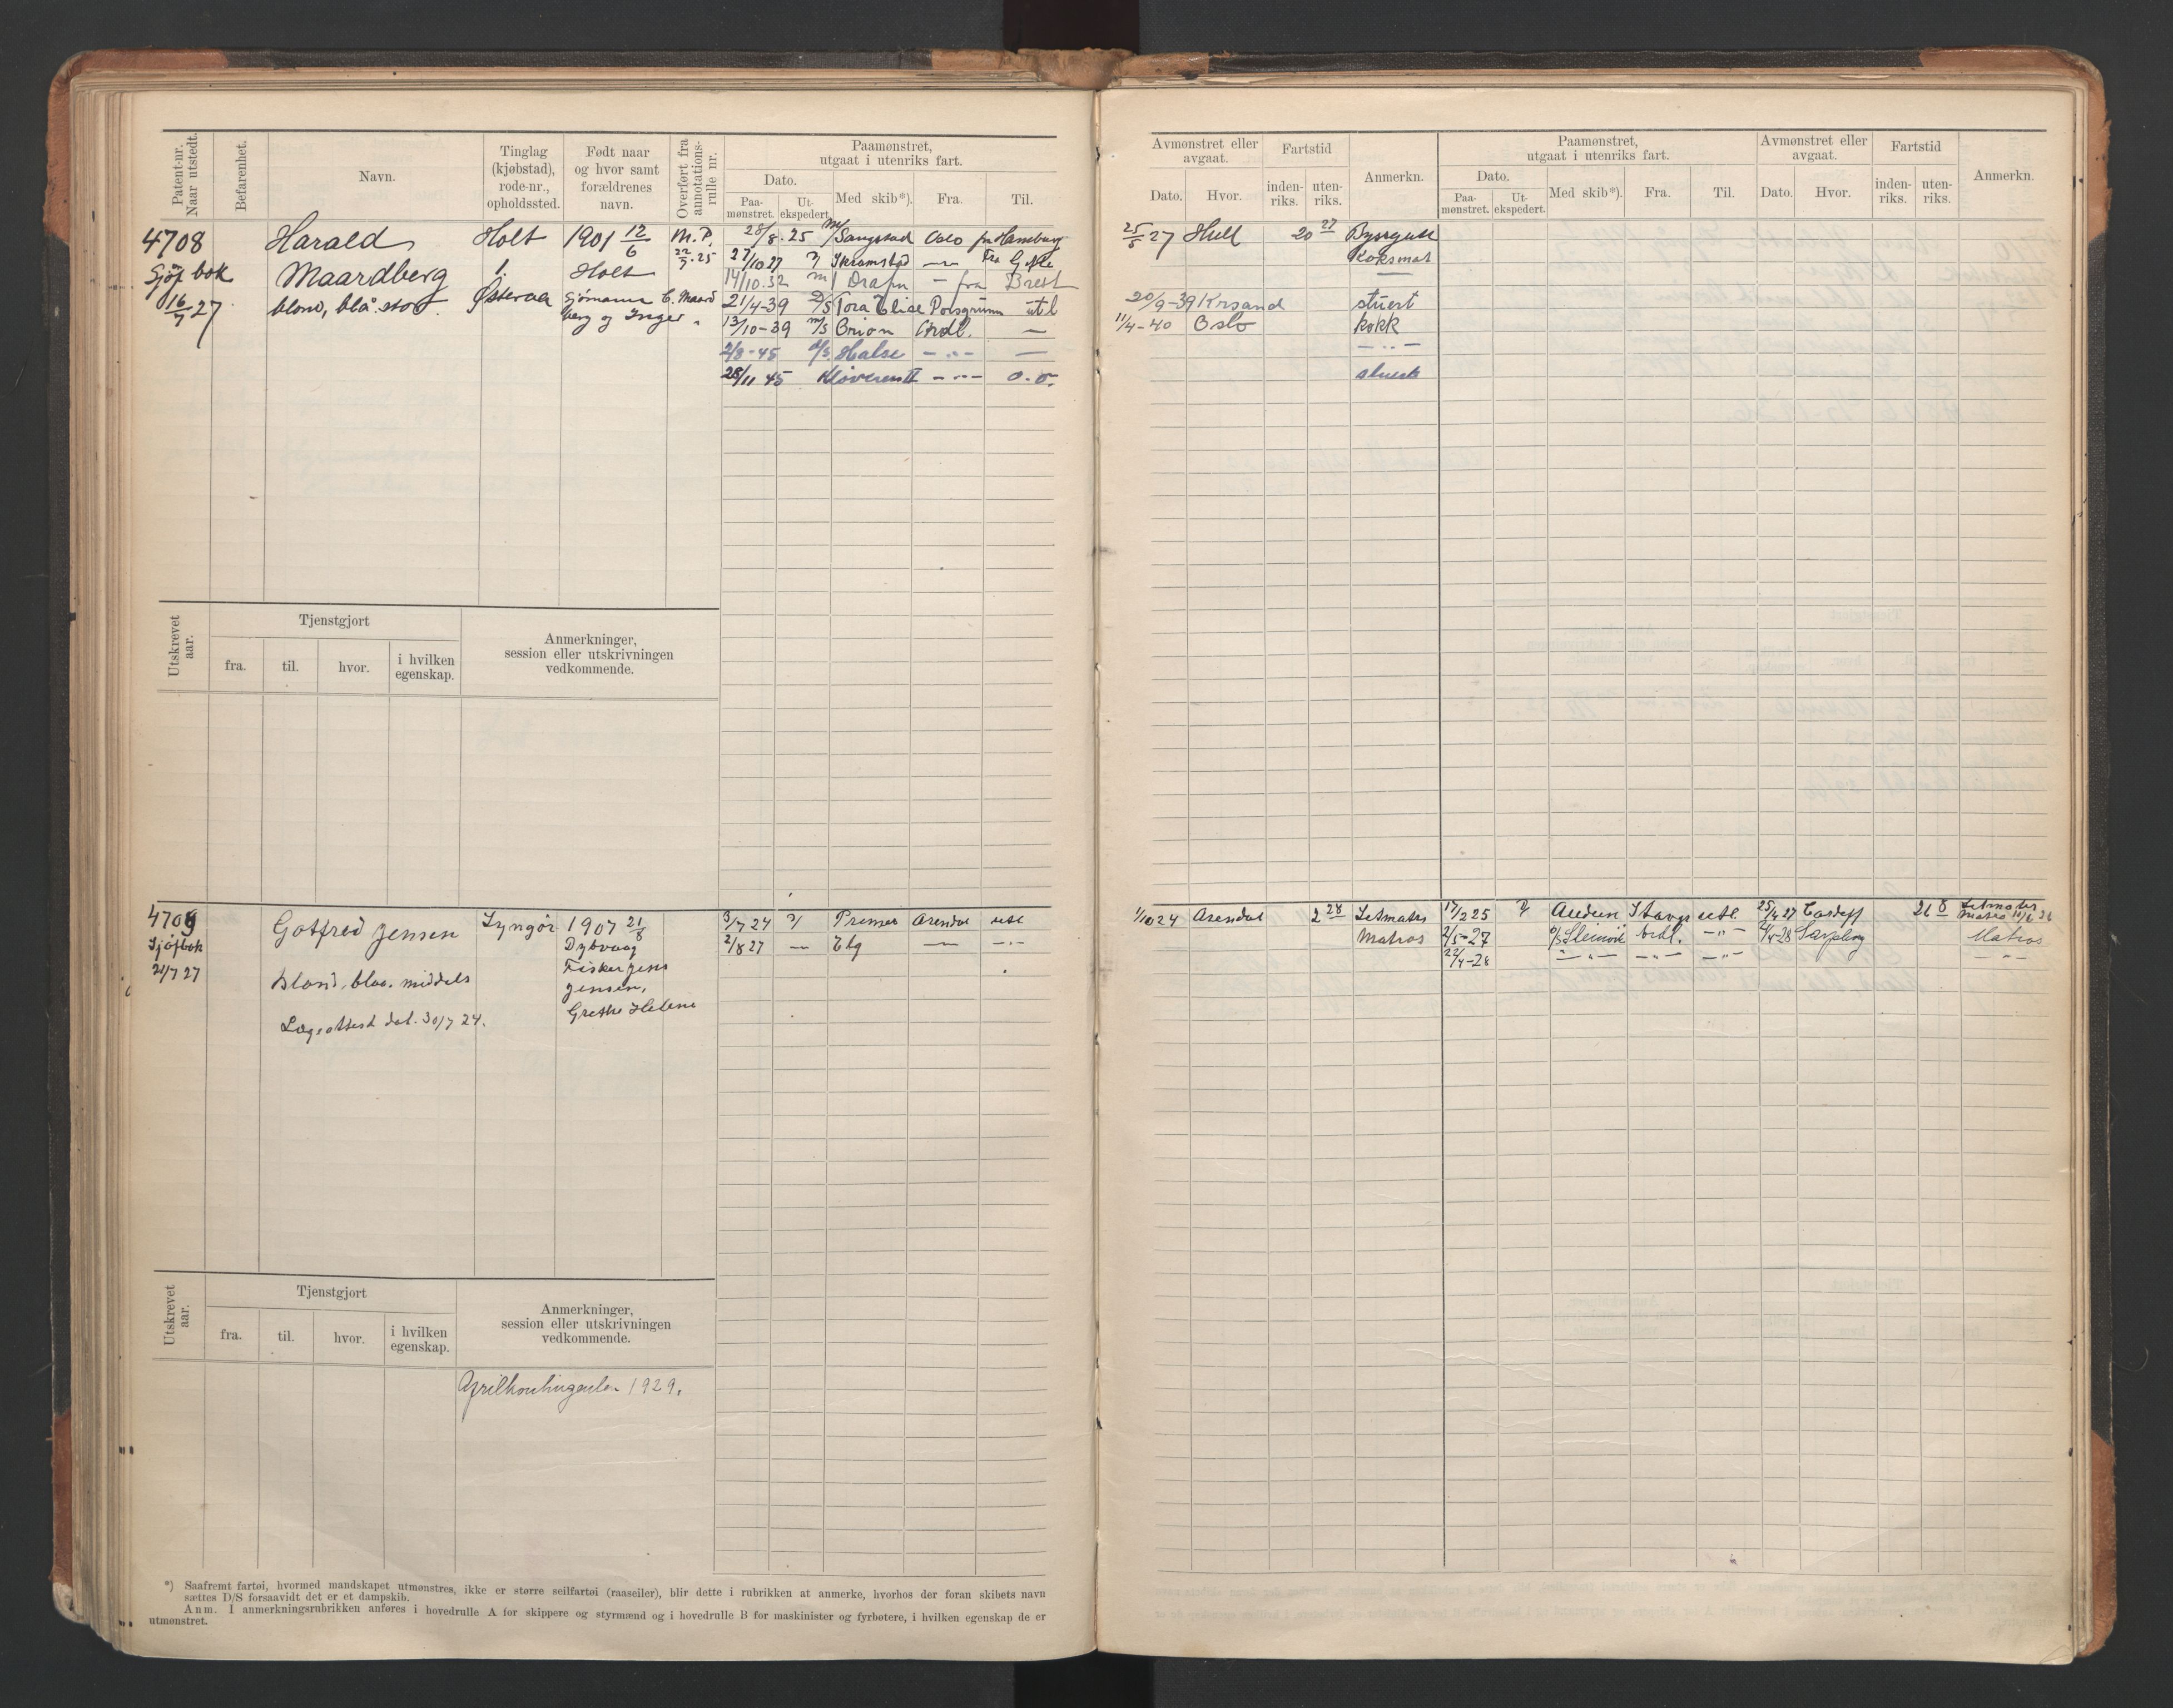 Patent-nr. Naar utstedt.
Befarenhet.
Navn.
Tinglag (kjøbstad), rode-nr., opholdssted.
Født naar og hvor samt forældrenes navn.
Overført fra annotations-rulle nr.
Paamønstret, utgaat i utenriks fart.
Dato.
Paa-mønstret.
Ut-ekspedert.
Med skib*).
Fra.
Til.
4708
Sjöf bok
16/7 27
Harald
Maardberg
blond, blå. stor
Holt
1.
Østeraa
1901 12/6
Holt
Sjömann C. Maard
berg og Inger
M.P.
22/7.25
28/8.25 m/ Sangstad Oslo fra Hamburg
27/10 27 Skramstad — fra Gefle
14/10.32 m/ Drafn — fra Brest
21/4-39 D/S Tora Elise Porsgrunn utl
13/10-39 m/s Orion Ardl. —
2/8-45 d/s. Halse — " — —
28/11 45 Kløveren II — " — o.o.
Utskrevet aar.
Tjenstgjort
fra.
til.
hvor.
i hvilken egenskap.
Anmerkninger, session eller utskrivningen vedkommende.
4709
Sjöfbok
21/7 27
Gotfred Jensen
Blond, blaa. middels
Lægeattest dat. 30/7 24.
Lyngör
1907 21/8
Dybvaag
Fisker Jens
Jensen,
Grethe Helene
3/7 24 Premier Arendal utl
2/8 27 — Elg — — " —
Utskrevet aar.
Tjenstgjort
fra.
til.
hvor.
i hvilken egenskap.
Anmerkninger, session eller utskrivningen vedkommende.
Aprilkontingenten 1929.
*) Saafremt fartøi, hvormed mandskapet utmønstres, ikke er større seilfartøi (raaseiler), blir dette i rubrikken at anmerke, hvorhos der foran skibets navn
sættes D/S forsaavidt det er et dampskib.
Anm. I anmerkningsrubrikken anføres i hovedrulle A for skippere og styrmænd og i hovedrulle B for maskinister og fyrbøtere, i hvilken egenskap de er
utmønstret.
Avmønstret eller avgaat.
Dato.
Hvor.
Fartstid
inden-riks.
uten-riks.
Anmerkn.
Paamønstret, utgaat i utenriks fart.
Dato.
Paa-mønstret.
Ut-ekspedert.
Med skib*).
Fra.
Til.
Avmønstret eller avgaat.
Dato.
Hvor.
Fartstid
inden-riks.
uten-riks.
Anmerkn.
25/8 27 Hull 20 27 Byssgutt
Koksmat
—
20/9-39 Krsand stuert
11/4-40 Oslo kokk
— " —
stuert
1/10 24 Arendal 2 28 Letmatros 17/2 25 Audun Stavgr utl. 25/4 27 Cardiff 26 8 Letmatros
Matros 2/5-27 Ardl. — " — Sarpsborg Matros
22/4-28 — " — — " — — " — — " —